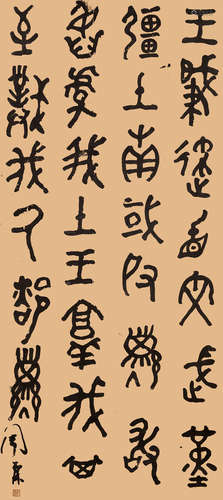 王肇遹省文武堇
疆土南或𠬝孳敢
臽虐我土王𦎫伐其
至撲伐氒都𠬝孳